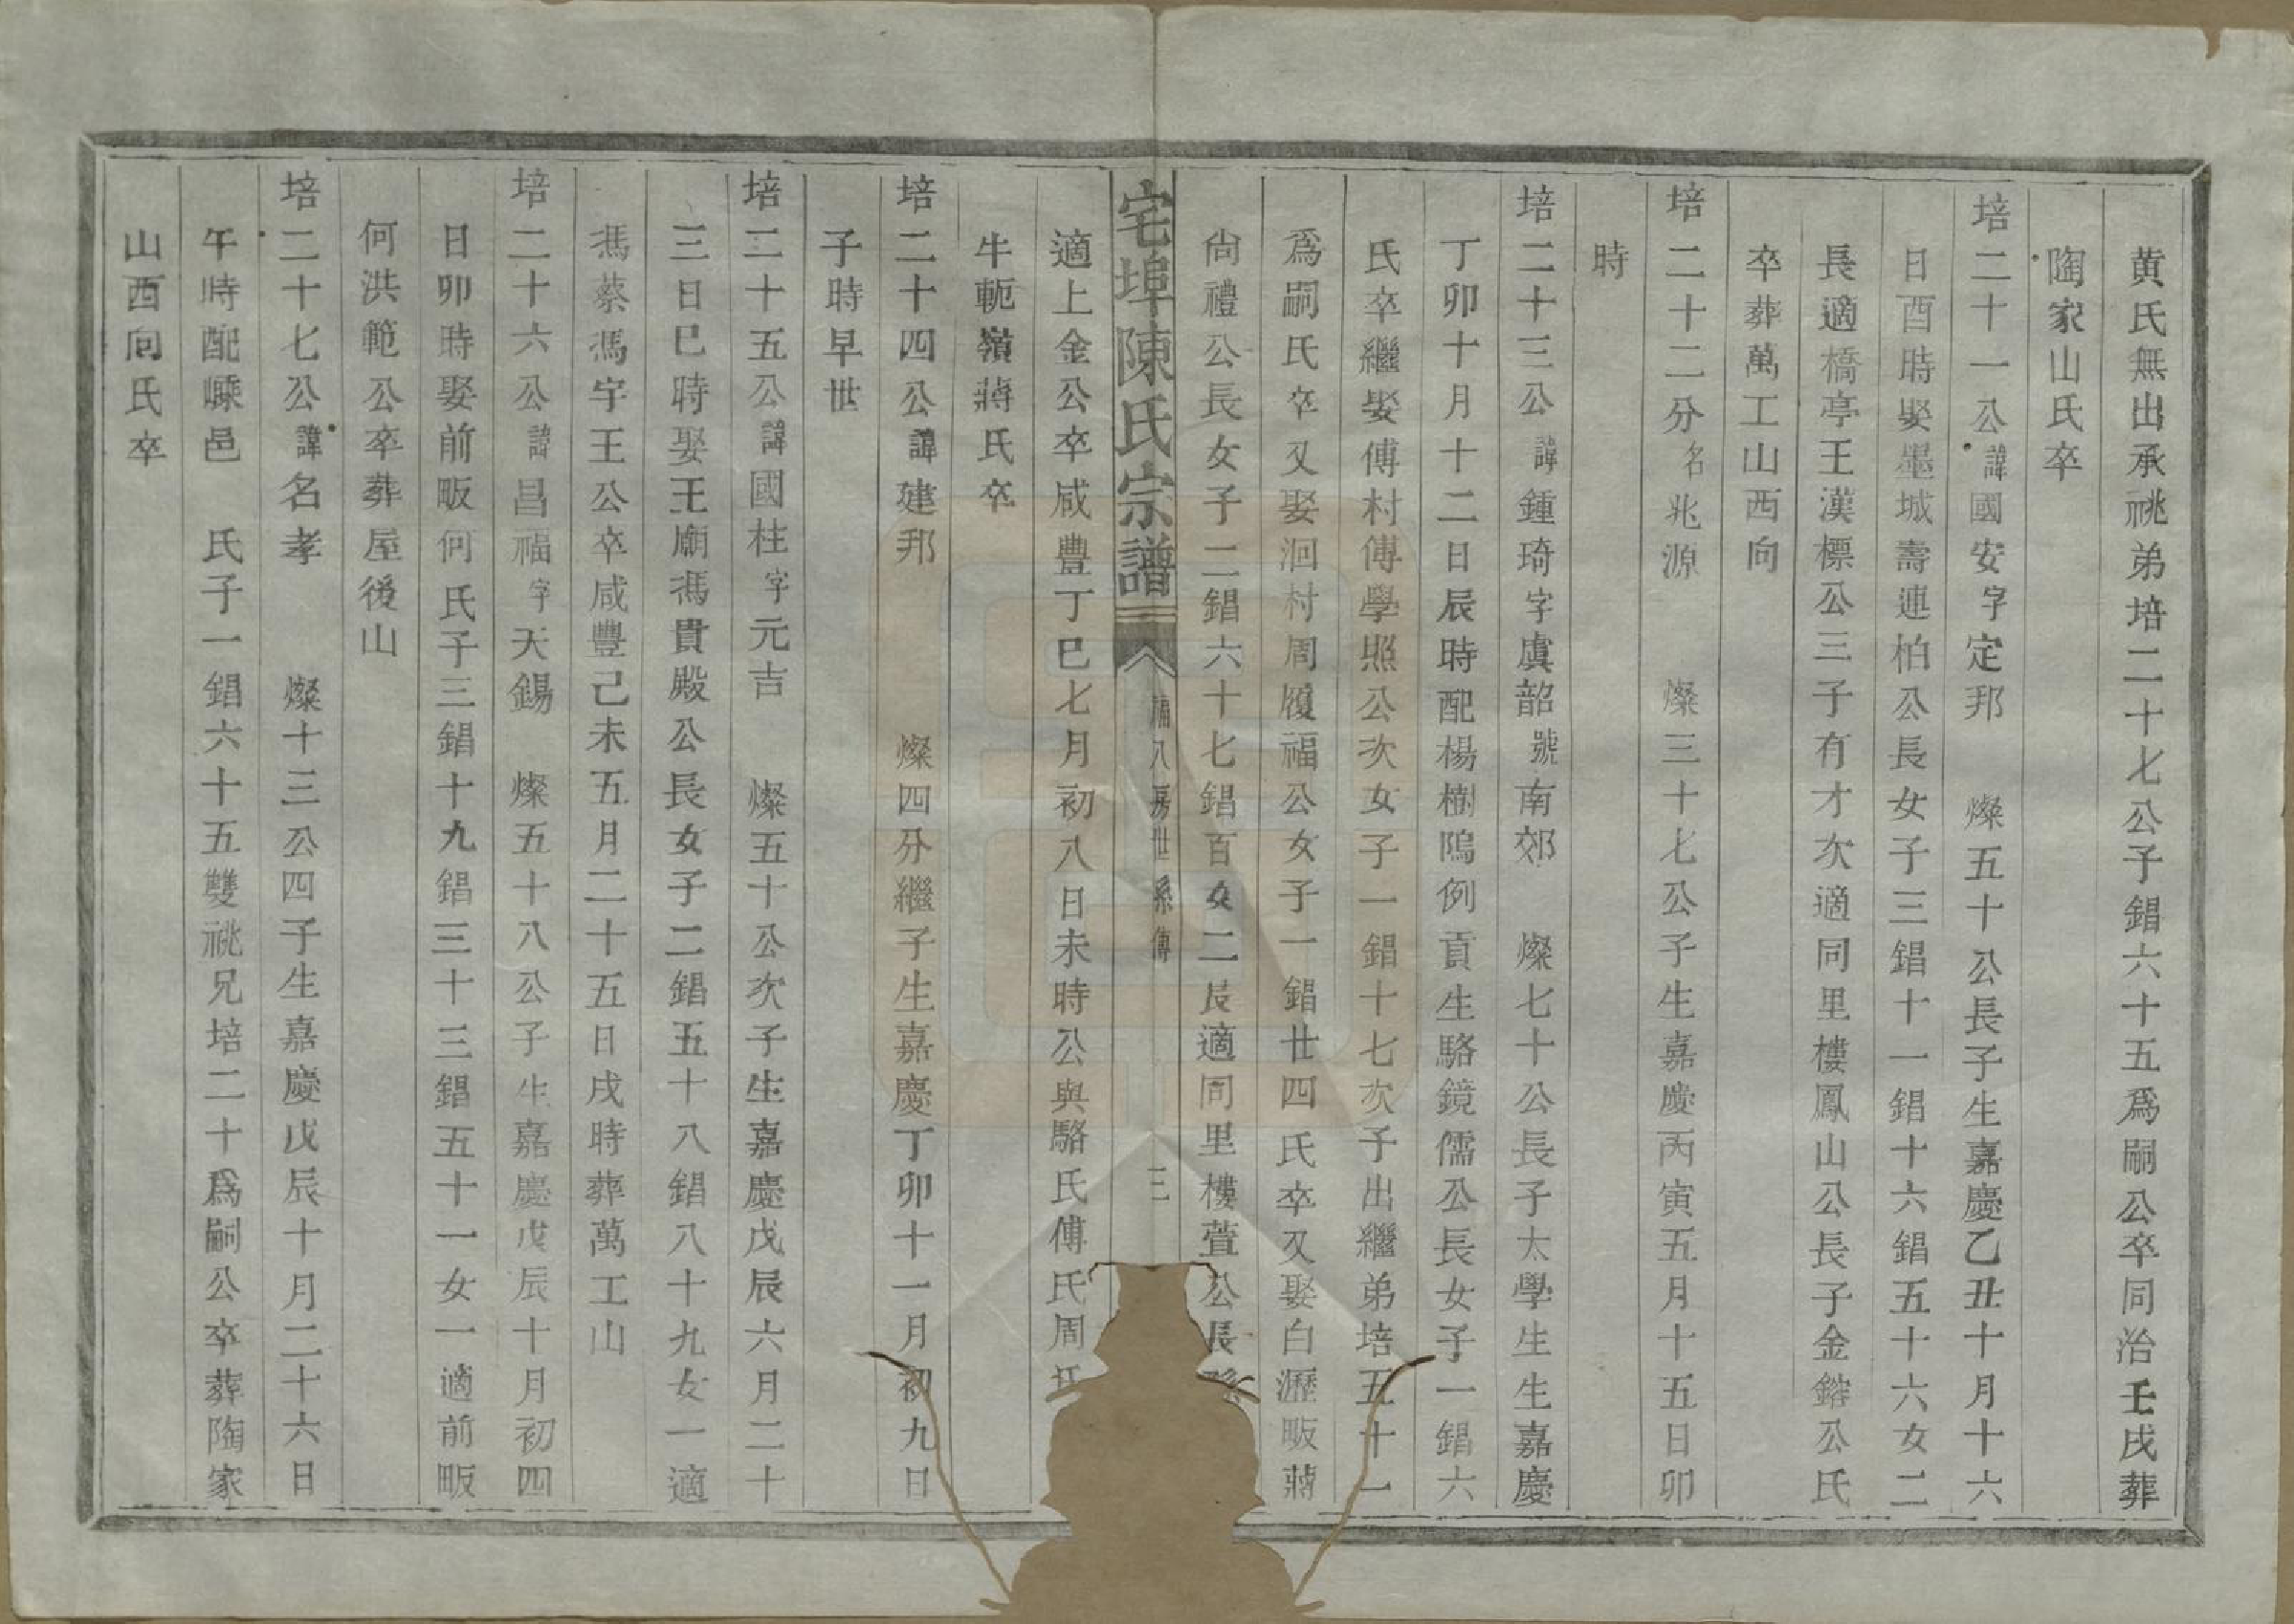 黄氏無出承祧弟培二十七公子錩六十五爲嗣公卒同治壬戌葬
陶家山氏卒
培二十一公諱國安字定邦 燦五十公長子生嘉慶乙丑十月十六
日酉時娶墨城壽連柏公長女子三錩十一錩十六錩五十六女二
長適橋亭王漢標公三子有才次適同里樓鳳山公長子金鎔公氏
卒葬萬工山西向
培二十二分名兆源 燦三十七公子生嘉慶丙寅五月十五日卯
時
培二十三公諱鍾琦字虞韶號南郊 燦七十公長子太學生生嘉慶
丁卯十月十二日辰時配楊樹隖例貢生駱鏡儒公長女子一錩六
氏卒繼娶傅村傅學照公次女子一錩十七次子出繼弟培五十一
爲嗣氏卒又娶洄村周履福公女子一錩廿四氏卒又娶白瀝畈蔣
尙禮公長女子二錩六十七錩百女二長適同里樓萱公長
宅埠陳氏宗譜
福八房世系傳
三
適上金公卒咸豐丁巳七月初八日未時公與駱氏傅氏周氏
牛軛嶺蔣氏卒
培二十四公諱建邦 燦四分繼子生嘉慶丁卯十一月初九日
子時早世
培二十五公諱國柱字元吉 燦五十公次子生嘉慶戊辰六月二十
三日巳時娶王廟馮貴殿公長女子二錩五十八錩八十九女一適
馮蔡馮宇王公卒咸豐己未五月二十五日戌時葬萬工山
培二十六公諱昌福字天錫 燦五十八公子生嘉慶戊辰十月初四
日卯時娶前畈何氏子三錩十九錩三十三錩五十一女一適前畈
何洪範公卒葬屋後山
培二十七公諱名孝 燦十三公四子生嘉慶戊辰十月二十六日
午時配嵊邑 氏子一錩六十五雙祧兄培二十爲嗣公卒葬陶家
山西向氏卒